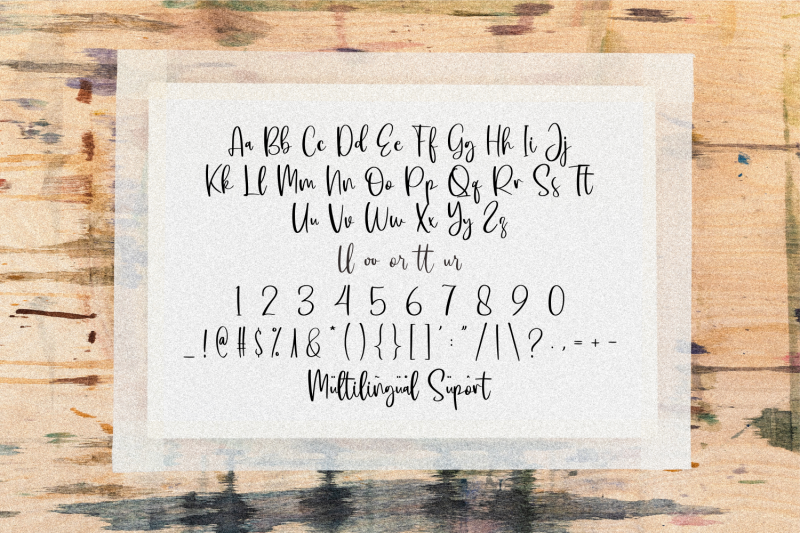 Aa Bb Cc Dd Ee Ff Gg Hh Ii Jj
Kk Ll Mm Nn Oo Pp Qq Rr Ss Tt
Uu Vv Ww Xx Yy Zz
ll ov or tt ur
1 2 3 4 5 6 7 8 9 0
_ ! @ # $ % ʌ & * ( ) { } [ ] ' : " / | \ ? . , = + -
Mültilingüäl Süpört